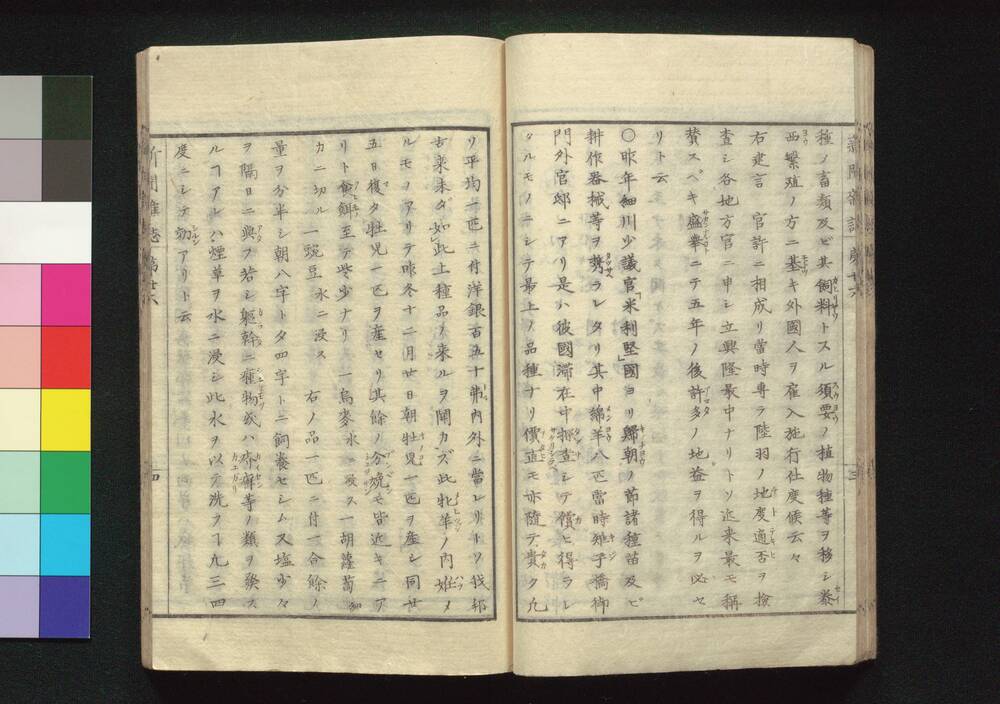 種ノ畜類及ビ其飼料トスル須要ノ植物種等ヲ移シ養
西繁殖ノ方ニ基キ外國人ヲ雇入施行仕度候云々
右建言 官許ニ相成リ當時専ラ陸羽ノ地度適否ヲ檢
査シ各地方官ニ申シ立興隆最中ナリトソ近来最モ稱
賛スベキ盛舉ニテ五年ノ後許多ノ地益ヲ得ルヲ必セ
リト云
〇昨年細川少議官「米利堅」國ヨリ歸朝ノ節諸種苗及ビ
耕作器械等ヲ携ラレタリ其中綿羊八匹當時雉子橋御
門外官邸ニアリ是ハ彼國滞在中探査シテ償ヒ得ラレ
タルモノニシテ最上ノ品種ナリ價直モ亦隨テ貴ク九
リ平均一匹ニ付洋銀百五十弗内外ニ當レリトソ我邦
古来未ダ如此上種品ノ来ルヲ聞カズ此牝羊ノ内姙メ
ルモノアリテ昨冬十二月廿日朝牡児一匹ヲ産シ同廿
五日復タ牡児一匹ヲ産セリ其餘ノ分娩モ皆近キニア
リト食餌至テ些少ナリ 一烏麥水ニ浸ス 一胡蘿蔔細
カニ切ル 一豌豆水ニ浸ス 右ノ品一匹ニ付一合餘ノ
量ヲ分半シ朝八字トタ四字トニ飼養セシムス塩少々
ヲ隔日ニ與フ若シ軀幹ニ瘇物或ハ疥癬等ノ類ヲ發ス
ルコアレハ煙草ヲ水ニ浸シ此水ヲ以テ洗フヿ九三四
度ニシテ効アリト云
新聞雑誌 第廿六
三
四